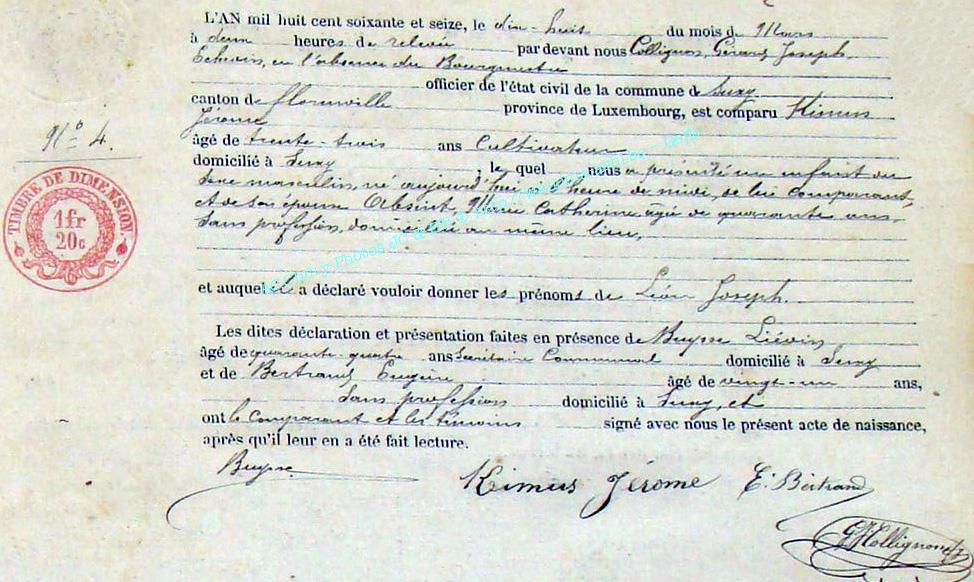 L'AN mil huit cent soixante et seize, le dix-huit du mois de Mars
à deux heures de relevée par devant nous Collignon, Gérard Joseph
Echevin, en l'absence du Bourgmestre
officier de l'état civil de la commune de Suxy
canton de florenville province de Luxembourg, est comparu Kimus
Jérome
N° 4.
âgé de trente-trois ans Cultivateur
domicilié à Suxy le quel nous a présenté un enfant du
sexe masculin, né aujourd'hui à l'heure de midi, de lui comparant,
et de son épouse Absint, Marie Catherine âgée de quarante ans,
sans profession, domiciliée au même lieu,
TIMBRE DE DIMENSION.
1fr
20c
et auquel il a déclaré vouloir donner les prénoms de Léon Joseph.
Les dites déclaration et présentation faites en présence de Buysse Liévin
âgé de quarante-quatre ans Secrétaire Communal domicilié à Suxy
et de Bertrand, Eugène âgé de vingt-un ans,
sans profession domicilié à Suxy, et
ont le comparant et les témoins signé avec nous le présent acte de naissance,
après qu'il leur en a été fait lecture.
Buysse
Kimus Jérome E. Bertrand
GJCollignon